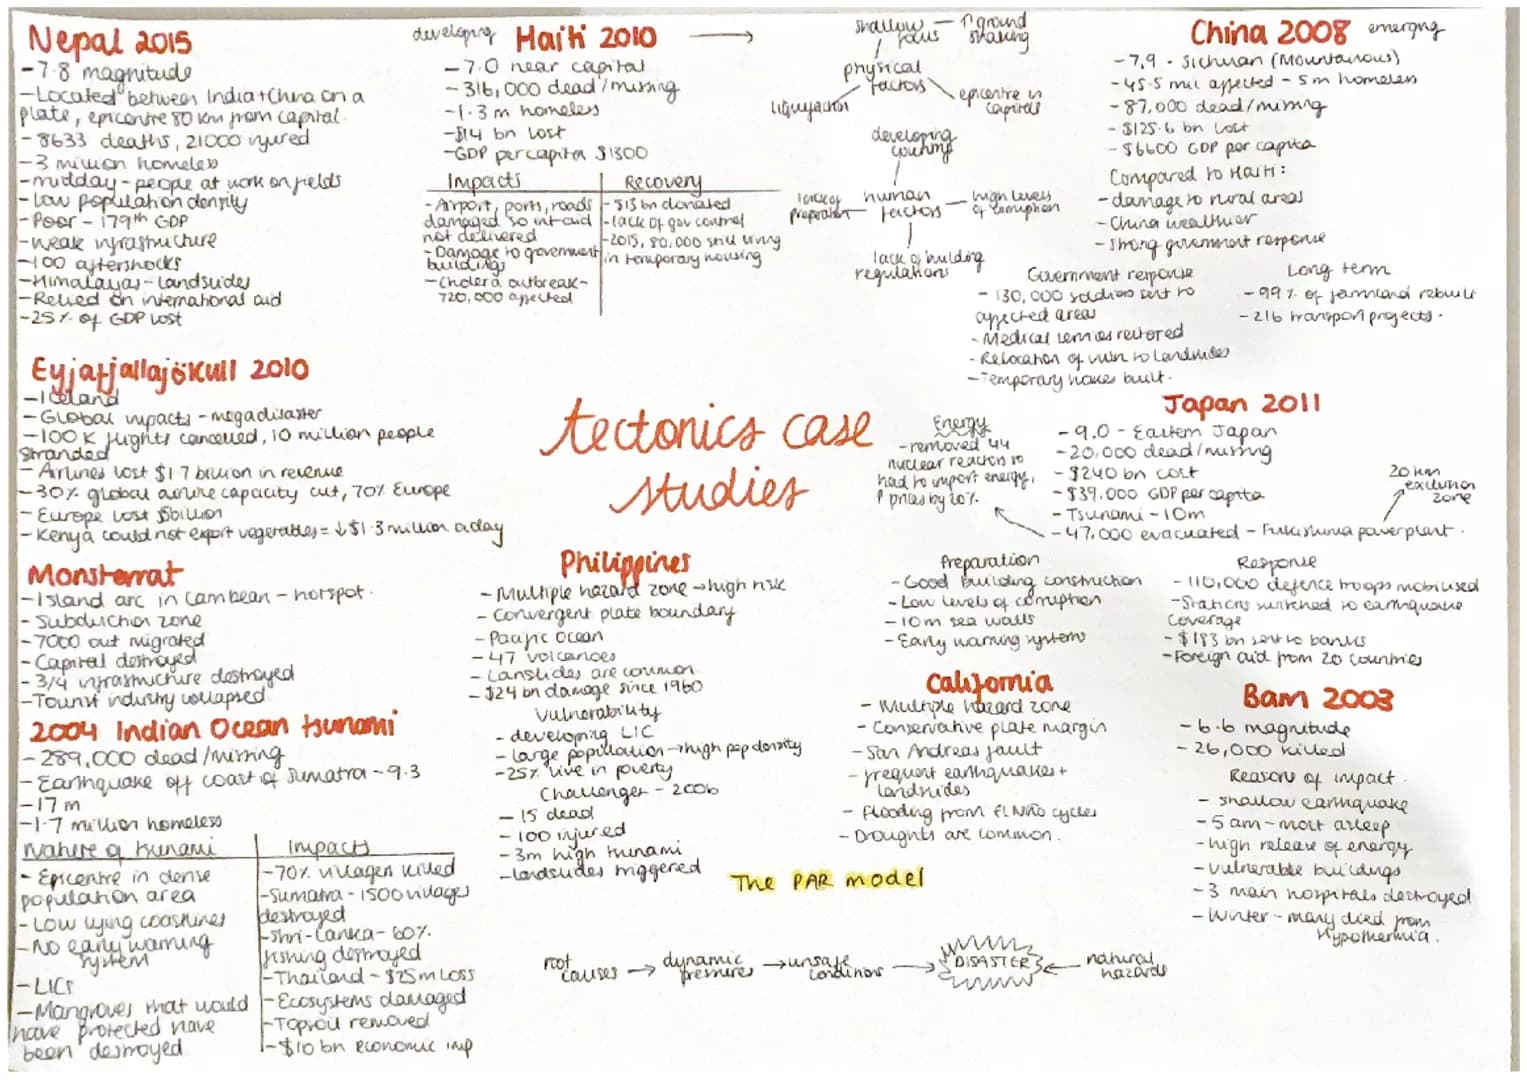 Nepal 2015
-7.8 magnitude
-Located between India+China on a
plate, epicentre 80 km from capital.
-8633 deaths, 21000 injured
-3 million homeless
-midday-people at work on fields
-Low population density
-Poor - 179th GDP
-weak infrastructure
-100 aftershocks
-Himalayas-landslides
-Relied on international aid
-25% of GDP lost
developing Haiti 2010
-7.0 near capital
-316,000 dead/missing
-1.3 m homeless
-$14 bn lost
-GDP per capita $1300
Impacts
-Airport, ports, roads
damaged so int aid
not delivered
-Damage to government
buildings
-Cholera outbreak-
720,000 affected
Recovery
-$13 bn donated
-lack of gov control
-2015, 80,000 still living
in temporary housing
shallow focus - ↑ ground
shaking
physical
factors
liquifaction
epicentre in
capital
developing
country
lack of
preparation
human
factors
high levels
of corruption
lack of building
regulations
China 2008 emerging
-7.9 - Sichuan (Mountainous)
-45.5 mil affected - 5m homeless
-87,000 dead/missing
-$125.6 bn lost
-$6600 GDP per capita
Compared to Haiti:
-damage to rural areas
-China wealthier
-strong government response
Government response
-130,000 soldiers sent to
affected areas
-Medical services restored
-Relocation of vuln to landslides
-Temporary homes built.
Long term
-99% of farmland rebuilt
-216 transport projects.
Eyjafjallajökull 2010
-Iceland
-Global impacts - megadisaster
-100 K flights cancelled, 10 million people
stranded
-Airlines lost $1.7 billion in revenue
-30% global airline capacity cut, 70% Europe
-Europe lost $5billion
-Kenya could not export vegetables = ↓$1.3 million a day
tectonics case
studies
Energy
-removed 44
nuclear reactors so
had to import energy,
↑ prices by 20%.
Japan 2011
-9.0 - Eastern Japan
-20,000 dead/missing
-$240 bn cost
-$39,000 GDP per capita
-Tsunami - 10m
-47,000 evacuated - Fukushima powerplant.
20 km
exclusion
zone
Preparation
-Good building construction
-Low levels of corruption
-10m sea walls
-Early warning systems
Response
-110,000 defence troops mobilised
-Stations switched to earthquake
coverage
-$183 bn sent to banks
-Foreign aid from 20 countries
Monsterrat
-Island arc in Carribean - hotspot.
-Subduction zone
-7000 out migrated
-Capital destroyed
-3/4 infrastructure destroyed
-Tourist industry collapsed
Philippines
-Multiple hazard zone → high risk
-Convergent plate boundary
-Pacific Ocean
-47 volcanoes
-Lanslides are common
-$24 bn damage since 1960
Vulnerability
-developing LIC
-large population → high pop density
-25% live in poverty
Challenger - 2006
-15 dead
-100 injured
-3m high tsunami
-landslides triggered
California
-Multiple hazard zone
-Conservative plate margin
-San Andreas fault
-frequent earthquakes +
landslides
-Flooding from El Niño cycles
-Droughts are common.
Bam 2003
-6.6 magnitude
-26,000 killed
Reasons of impact.
-shallow earthquake
-5 am - most asleep
-high release of energy
-vulnerable buildings
-3 main hospitals destroyed
-Winter - many died from
Hypothermia.
2004 Indian Ocean tsunami
-289,000 dead/missing
-Earthquake off coast of Sumatra - 9.3
-17 m
-1.7 million homeless
Nature of tsunami
-Epicentre in dense
population area
-Low lying coastlines
-No early warning
system
-LICs
-Mangroves that would
have protected have
been destroyed
Impacts
-70% villagers killed
-Sumatra - 1500 villages
destroyed
-Shri-Lanka - 60%
fishing destroyed
-Thailand - $25m loss
-Ecosystems damaged
-Topsoil removed
-$10 bn economic imp
The PAR model
root
causes → dynamic
pressures → unsafe
conditions → DISASTER ← natural
hazards